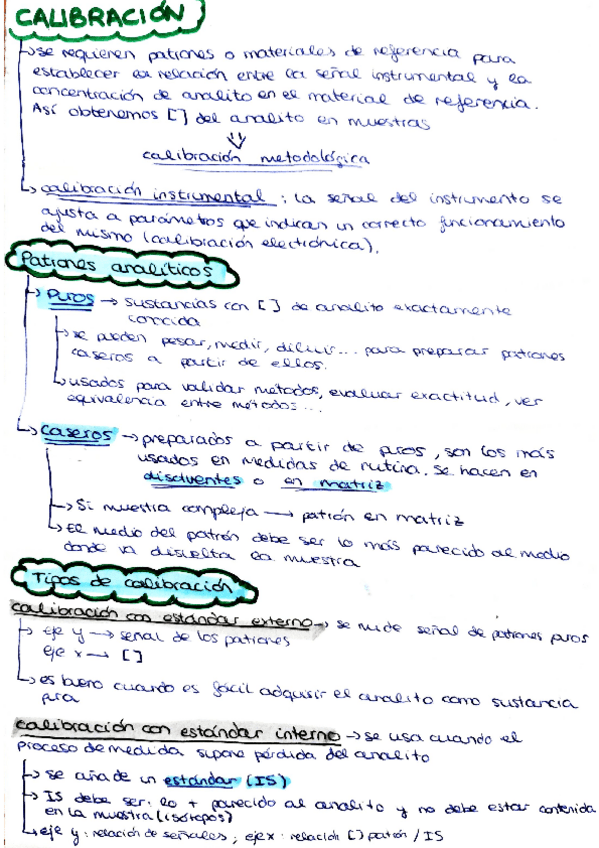 CALIBRACIÓN
→ se requieren patrones o materiales de referencia para
establecer la relación entre la señal instrumental y la
concentración de analito en el material de referencia.
Así obtenemos [] del analito en muestras
calibración metodológica
→ calibración instrumental: la señal del instrumento se
ajusta a parámetros que indican un correcto funcionamiento
del mismo (calibración electrónica).
Patrones analíticos
→ Puros → sustancias con [] de analito exactamente
conocida
→ se pueden pesar, medir, diluir... para preparar patrones
caseros a partir de ellos.
→ usados para validar métodos, evaluar exactitud, ver
equivalencia entre métodos...
→ Caseros → preparados a partir de puros, son los más
usados en medidas de rutina. Se hacen en
disolventes o en matriz
→ Si muestra compleja → patrón en matriz
→ El medio del patrón debe ser lo más parecido al medio
donde va disuelta la muestra
Tipos de calibración
calibración con estándar externo → se mide señal de patrones puros
→ eje y → señal de los patrones
eje x → []
→ es bueno cuando es fácil adquirir el analito como sustancia
pura
calibración con estándar interno → se usa cuando el
proceso de medida supone pérdida del analito
→ se añade un estándar (IS)
→ IS debe ser: lo + parecido al analito y no debe estar contenida
en la muestra (isótopos)
→ eje y: relación de señales; eje x: relación [] patrón / IS